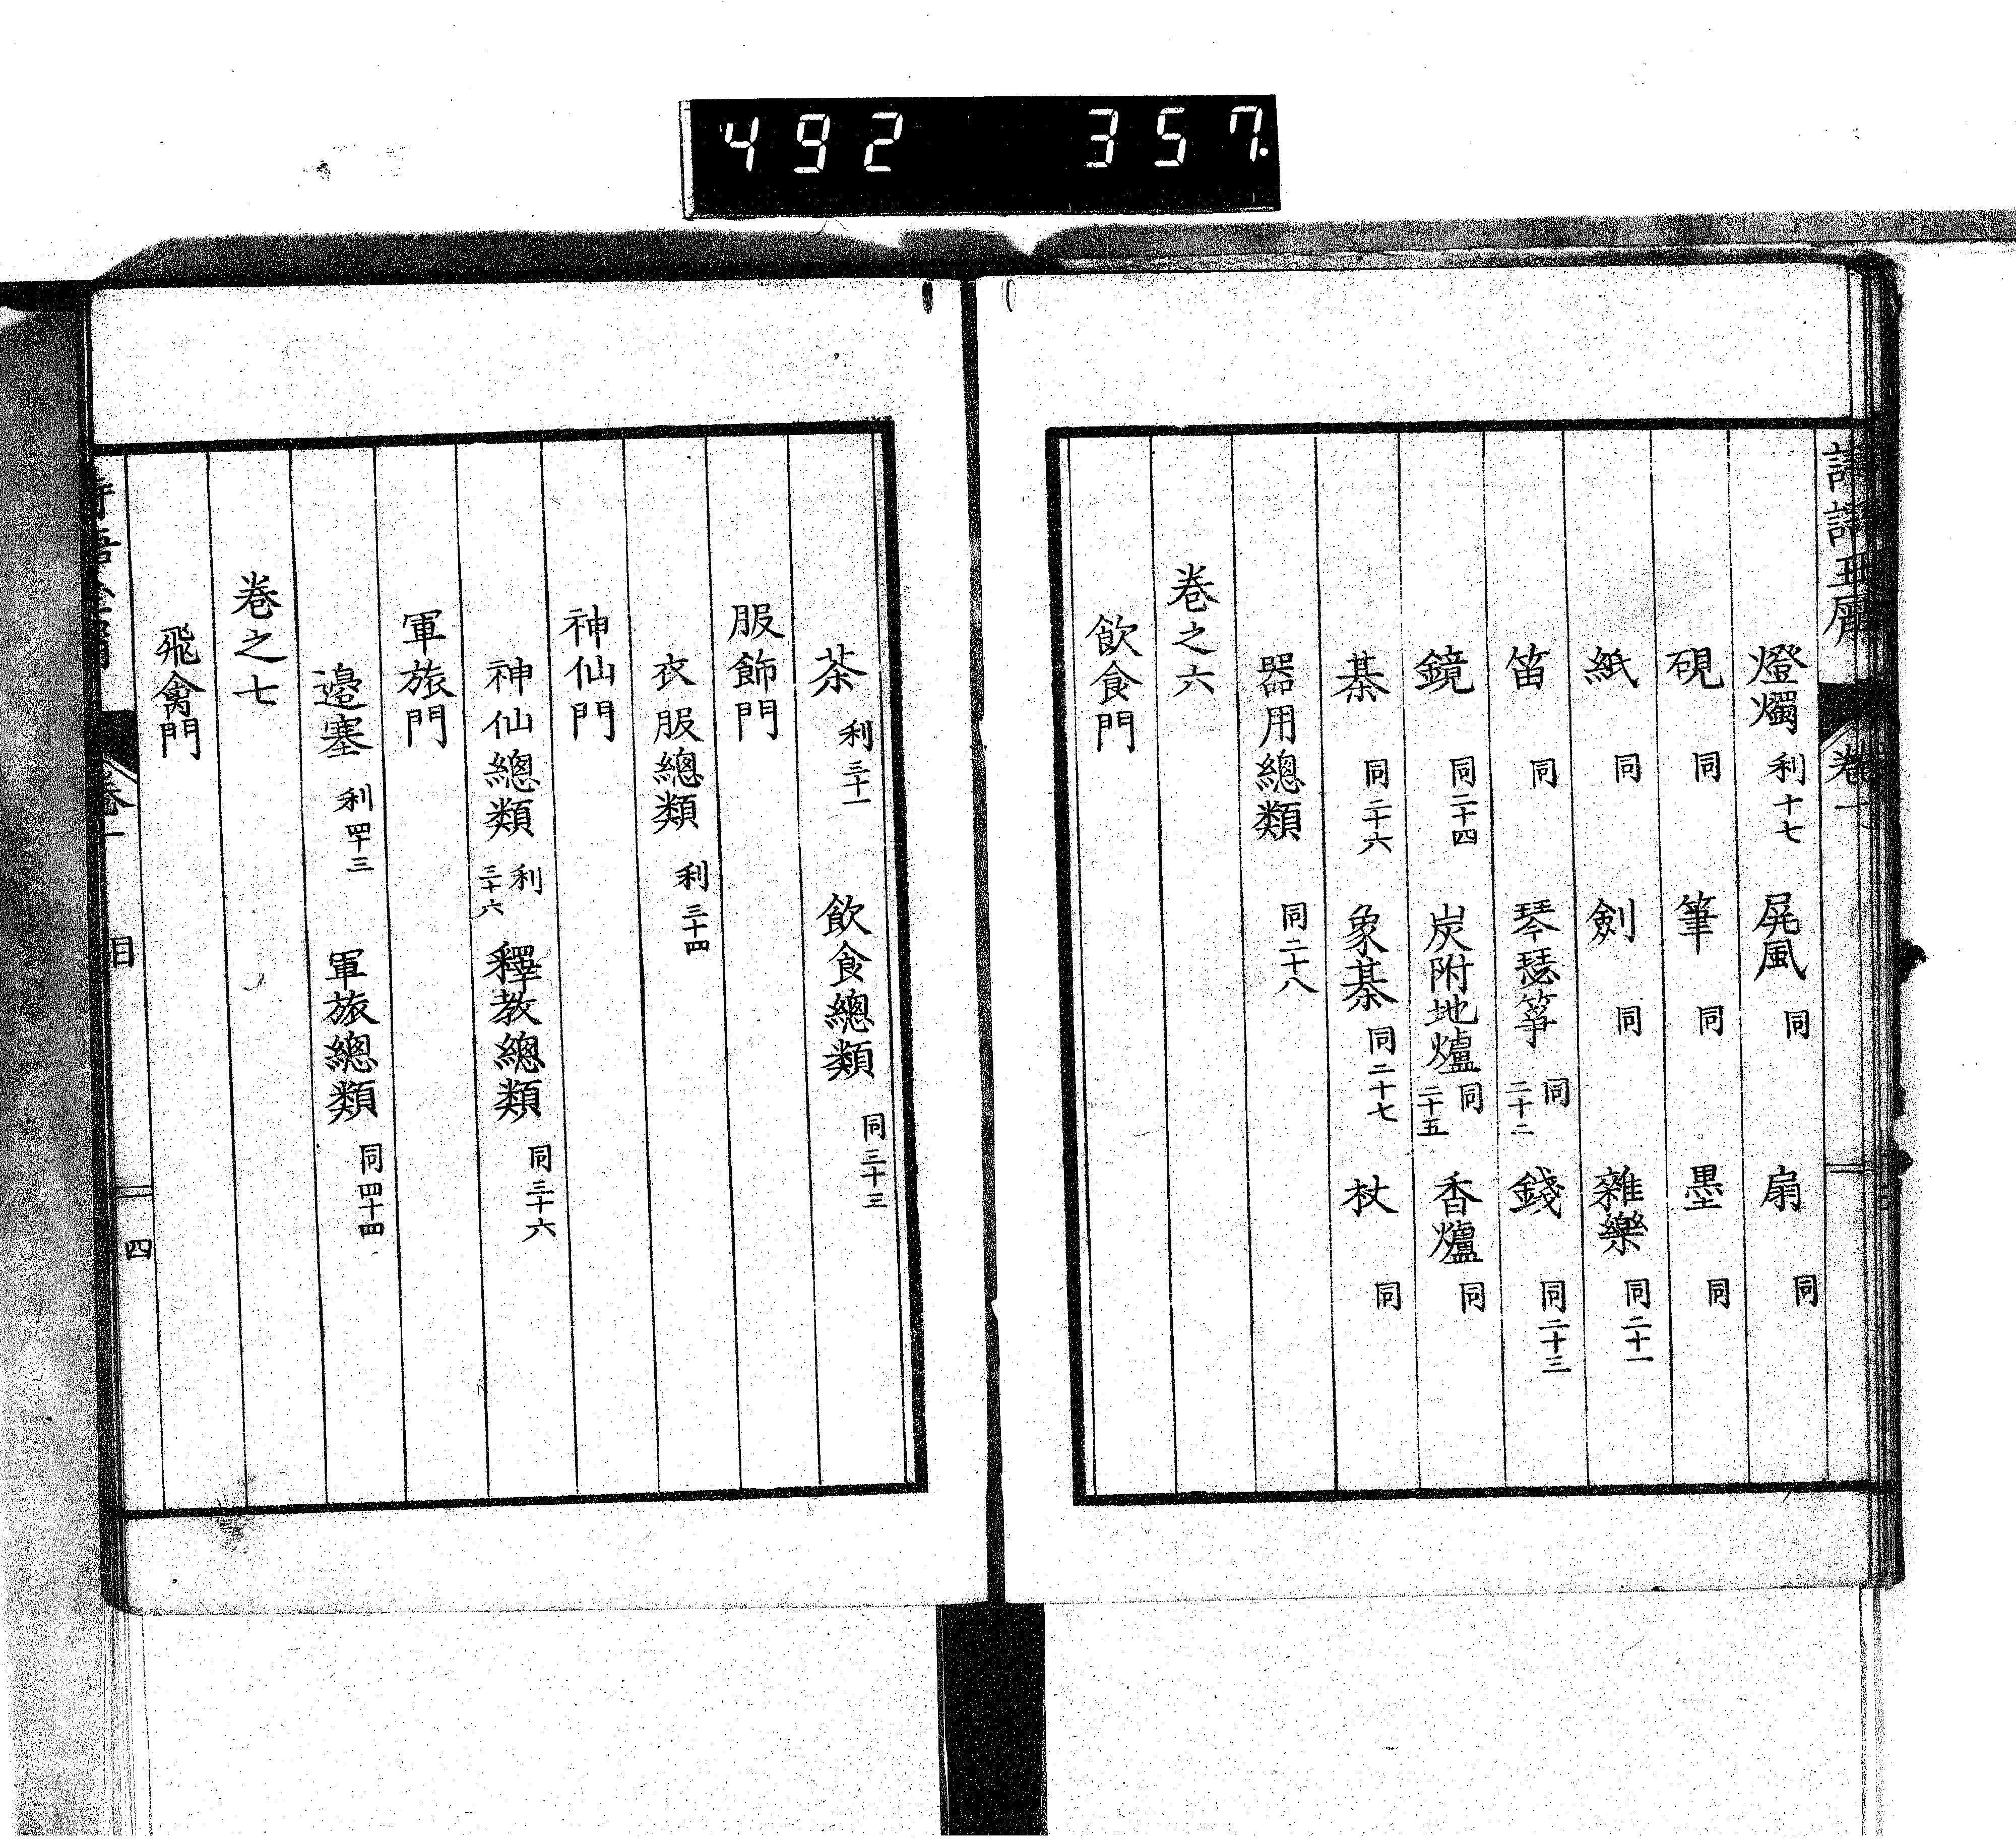 492 357.
燈燭 利十七 屏風 同 扇 同
硯 同 筆 同 墨 同
紙 同 劍 同 雜樂 同二十一
笛 同 琴瑟箏 同二十二 錢 同二十三
鏡 同二十四 炭附地爐 同二十五 香爐 同
棊 同二十六 象棊 同二十七 杖 同
器用總類 同二十八
卷之六
飲食門
茶 利三十一 飲食總類 同三十三
服飾門
衣服總類 利三十四
神仙門
神仙總類 利三十六 釋教總類 同三十六
軍旅門
邉塞 利四十三 軍旅總類 同四十四
卷之七
飛禽門
卷一 目 四